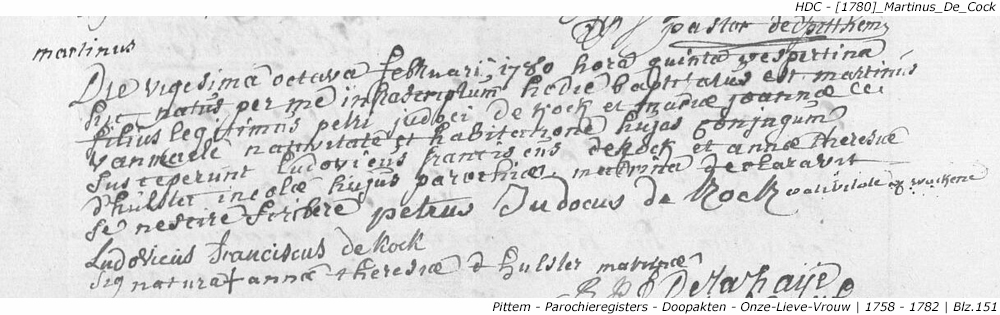 HDC - [1780]_Martinus_De_Cock
pastor de pitthem
martinus
Die vigesima octava februarii 1780 hora quinta vespertina
hic natus per me infrascriptum hodie baptisatus est martinus
filius legitimus petri judoci de Kock et mariæ joannæ
vanmaele nativitate et habitatione hujas conjugum
susceperunt ludovicus franciscus deKock et annæ theresiæ
d'hulster incolæ hujus parochiæ, matrina declaravit
se nescire scribere petrus Judocus de Kock
Ludovicus franciscus de Kock
signatura + annæ theresiæ d hulster matrinæ
Delahaije
Pittem - Parochieregisters - Doopakten - Onze-Lieve-Vrouw | 1758 - 1782 | Blz.151